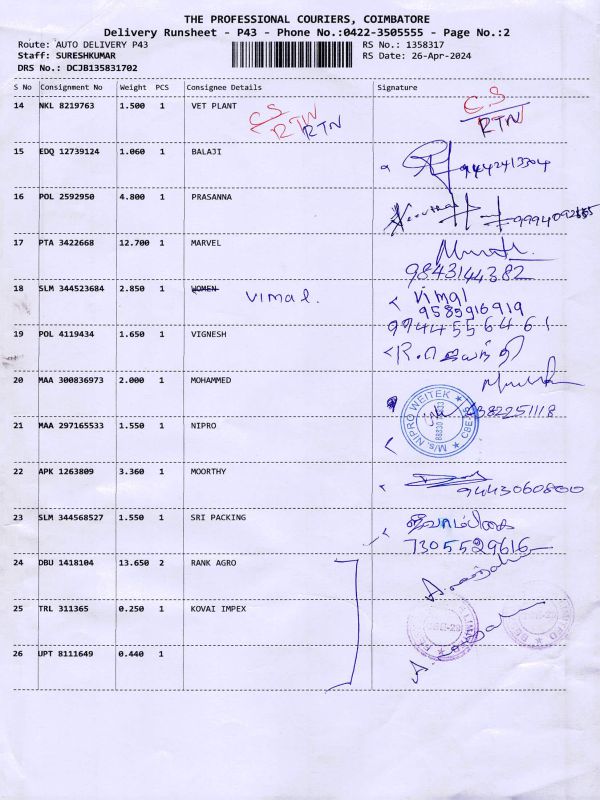 THE PROFESSIONAL COURIERS, COIMBATORE
Delivery Runsheet - P43 - Phone No.:0422-3505555 - Page No.:2
Route: AUTO DELIVERY P43 RS No.: 1358317
Staff: SURESHKUMAR RS Date: 26-Apr-2024
DRS No.: DCJB135831702
S No Consignment No Weight PCS Consignee Details Signature
14 NKL 8219763 1.500 1 VET PLANT CS RTN RTN CS RTN
15 EDQ 12739124 1.060 1 BALAJI 9442413304
16 POL 2592950 4.800 1 PRASANNA
17 PTA 3422668 12.700 1 MARVEL
9843144382
18 SLM 344523684 2.850 1 WOMEN Vimal. Vimal
9585916919
99444556461
19 POL 4119434 1.650 1 VIGNESH
20 MAA 300836973 2.000 1 MOHAMMED
21 MAA 297165533 1.550 1 NIPRO M/s. NIPRO WEITEK
22 APK 1263809 3.360 1 MOORTHY
9443060800
23 SLM 344568527 1.550 1 SRI PACKING
7305529616
24 DBU 1418104 13.650 2 RANK AGRO
25 TRL 311365 0.250 1 KOVAI IMPEX
26 UPT 8111649 0.440 1